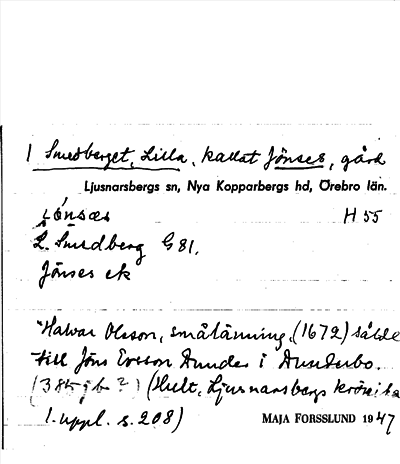 1 Smedberget, Lilla, kallat Jönses, gård
Ljusnarsbergs sn, Nya Kopparbergs hd, Örebro län.
H 55
L. Smedberg G 81.
Jönses ek
"Halvar Olsson, småtänning, (1672) sålde
till Jöns Ersson Dunder i Dunderbo.
(Hult, Ljusnarsbergs krönika
1. uppl. s. 208)
MAJA FORSSLUND 1947